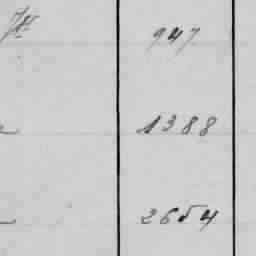 947
1388
2654